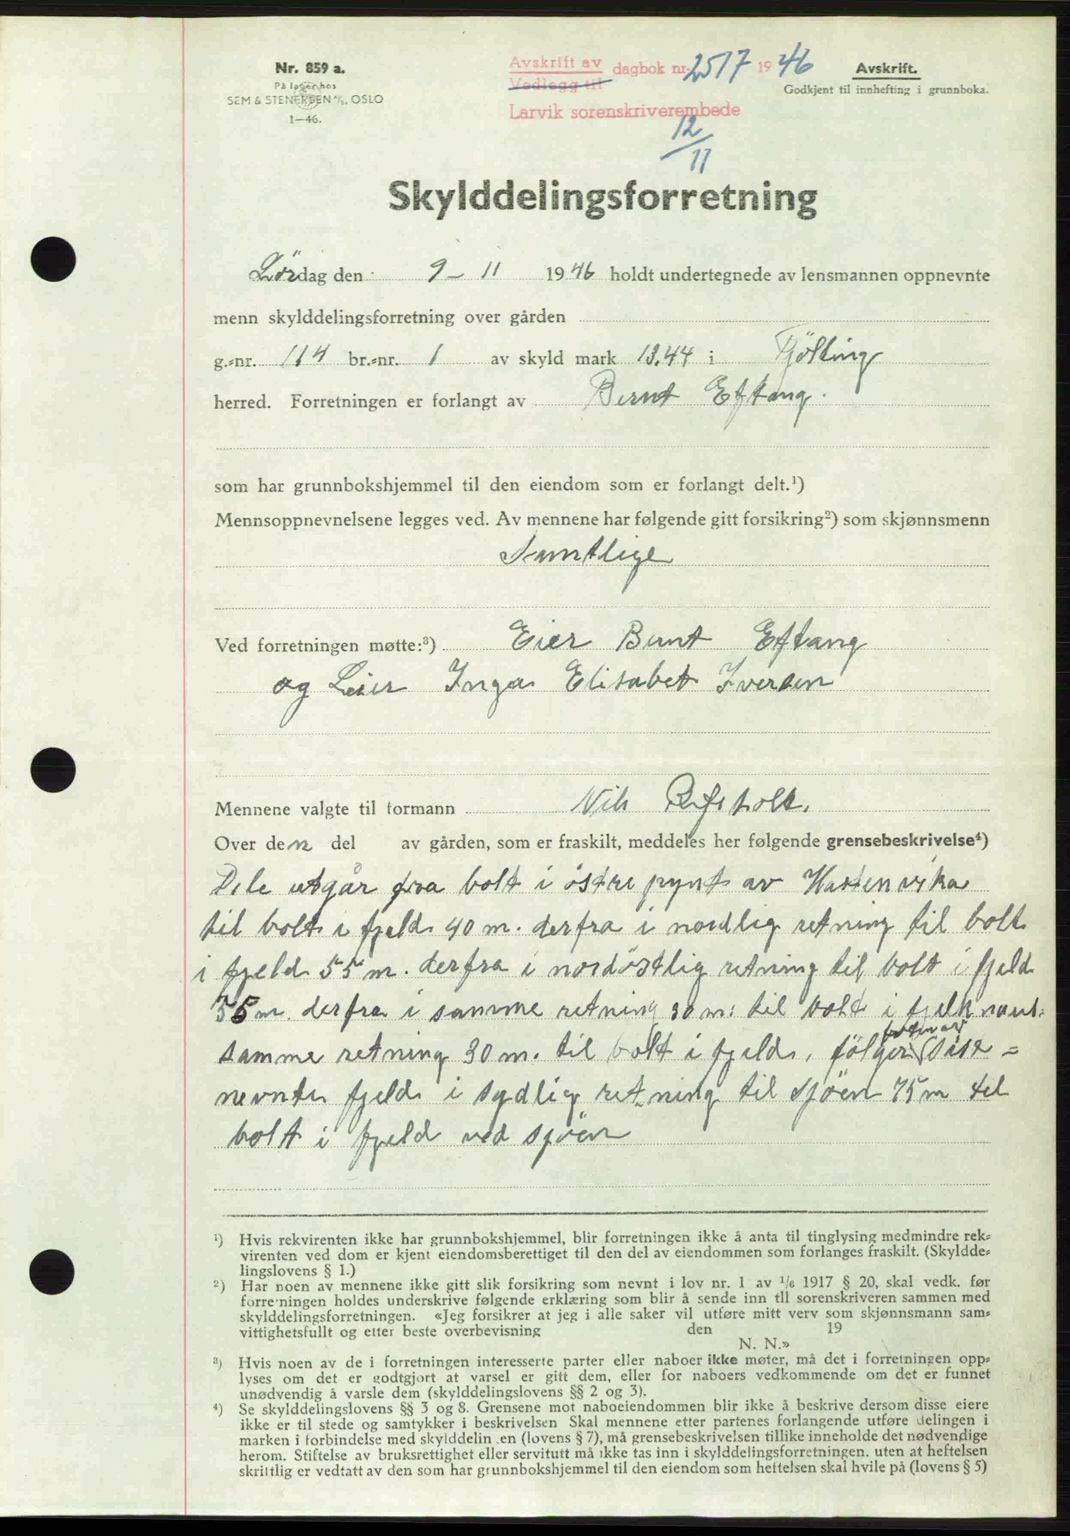 Nr. 859 a.
På lager hos
SEM & STENERSEN A/S, OSLO
1—46.
Avskrift av dagbok nr. 2517 1946
Vedlegg til
Larvik sorenskriverembede
12/11
Avskrift.
Godkjent til innhefting i grunnboka.
Skylddelingsforretning
Lördag den 9 - 11 1946 holdt undertegnede av lensmannen oppnevnte
menn skylddelingsforretning over gården
g.-nr. 114 br.-nr. 1 av skyld mark 13.44 i Tjölling
herred. Forretningen er forlangt av Bernt Eftang.
som har grunnbokshjemmel til den eiendom som er forlangt delt.¹)
Mennsoppnevnelsene legges ved. Av mennene har følgende gitt forsikring²) som skjønnsmenn
Samtlige
Ved forretningen møtte:³) Eier Bernt Eftang
og Leier Inga Elisabet Iversen
Mennene valgte til formann Nils
Over den del av gården, som er fraskilt, meddeles her følgende grensebeskrivelse⁴)
Dele utgår fra bolt i östre pynt av
til bolt i fjeld 40 m. derfra i nordlig retning til bolt
i fjeld 55 m. derfra i nordöstlig retning til bolt i fjeld
55 m. derfra i samme retning 30 m. til bolt i fjeld
samme retning 30 m. til bolt i fjeld, fölger sist=
nevnte fjeld i sydlig retning til sjöen 75 m til
bolt i fjeld ved sjöen
¹) Hvis rekvirenten ikke har grunnbokshjemmel, blir forretningen ikke å anta til tinglysing medmindre rek-
virenten ved dom er kjent eiendomsberettiget til den del av eiendommen som forlanges fraskilt. (Skyldde-
lingslovens § 1.)
²) Har noen av mennene ikke gitt slik forsikring som nevnt i lov nr. 1 av 1/6 1917 § 20, skal vedk. før
forretningen holdes underskrive følgende erklæring som blir å sende inn til sorenskriveren sammen med
skylddelingsforretningen. «Jeg forsikrer at jeg i alle saker vil utføre mitt verv som skjønnsmann sam-
vittighetsfullt og etter beste overbevisning den 19
N. N.»
³) Hvis noen av de i forretningen interesserte parter eller naboer ikke møter, må det i forretningen opp-
lyses om det er godtgjort at varsel er gitt dem, eller for naboers vedkommende om det er funnet
unødvendig å varsle dem (skylddelingslovens §§ 2 og 3).
⁴) Se skylddelingslovens §§ 3 og 8. Grensene mot naboeiendommen blir ikke å beskrive dersom disse eiere
ikke er til stede og samtykker i beskrivelsen Skal mennene etter partenes forlangende utføre delingen i
marken i forbindelse med skylddelin en (lovens § 7), må grensebeskrivelsen tillike inneholde det nødvendige
herom. Stiftelse av bruksrettighet eller servitutt må ikke tas inn i skylddelingsforretningen. uten at heftelsen
skriftlig er vedtatt av den som har grunnbokshjemmel til den eiendom som heftelsen skal hvile på (lovens § 5)